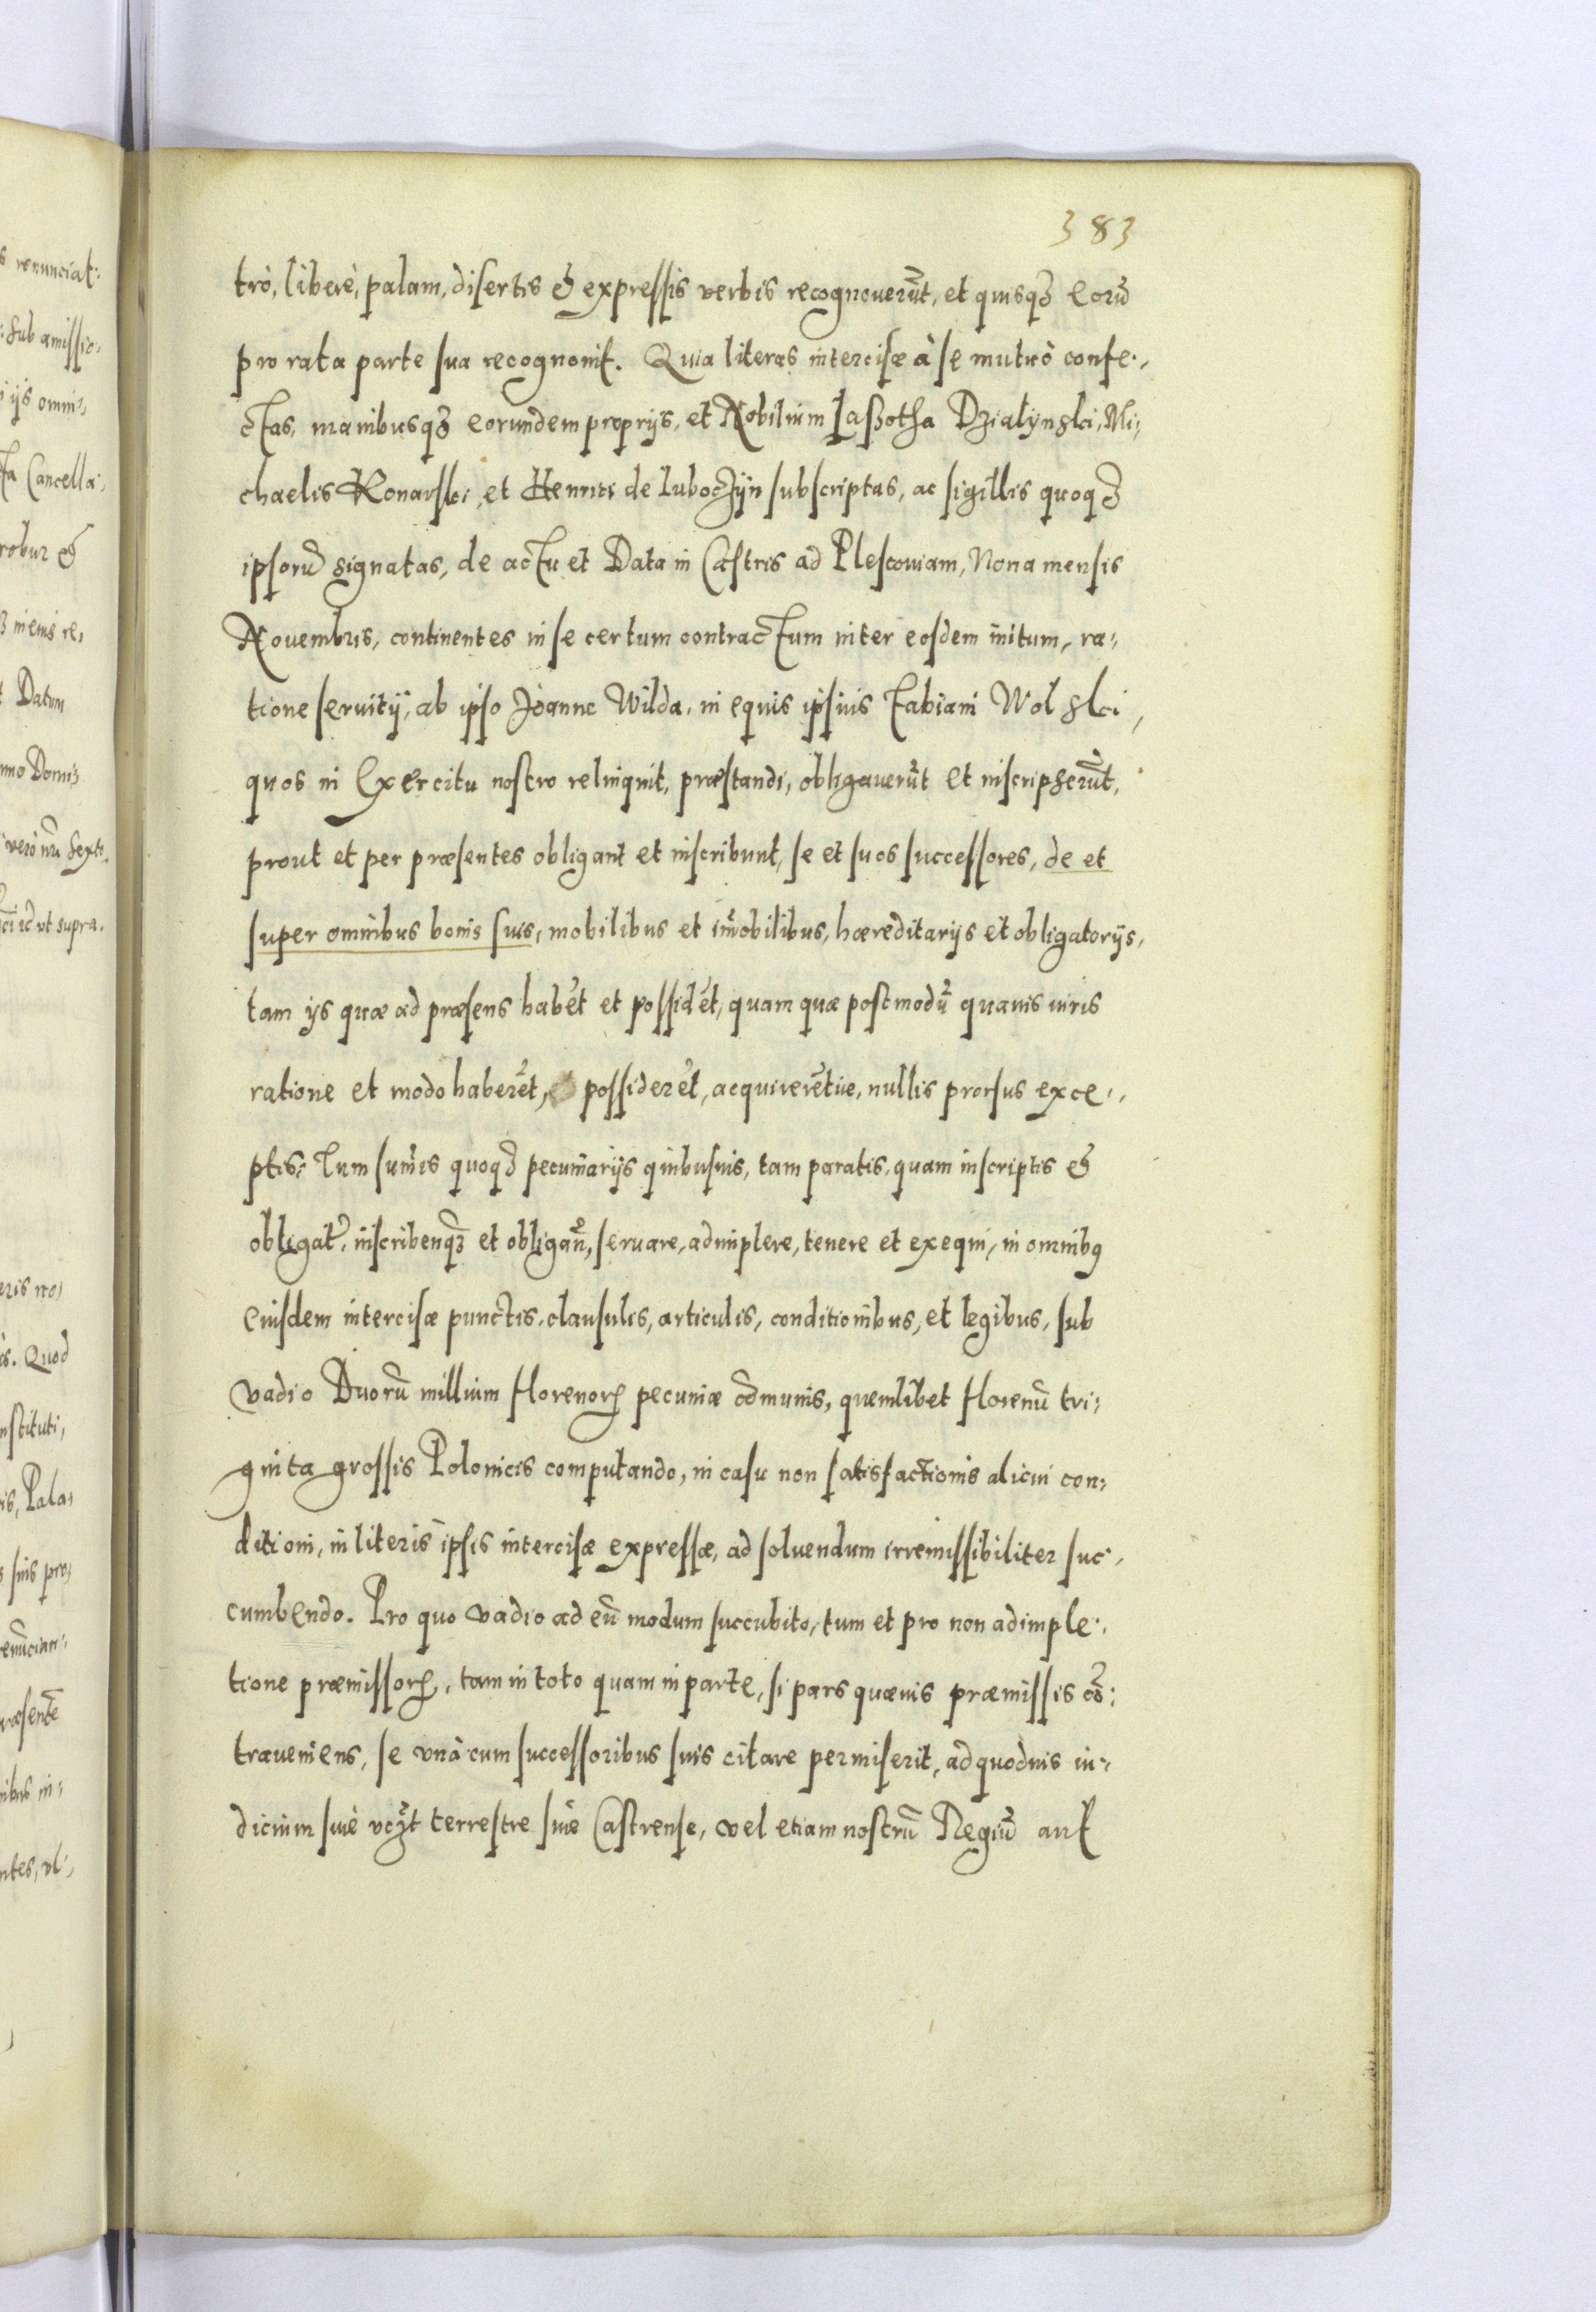 383
trò, liberè, palam, disertis & expressis verbis recognouerūt, et quisqꝫ eorū
pro rata parte sua recognouit. Quia literas intercisæ à se mutuò confe-
ctas, manibusqꝫ eorundem proprijs, et Nobilium Laßotha Dzialynski, Mi-
chaelis Konarski, et Henrici de Lubociyn subscriptas, ac sigillis quoqꝫ
ipsorū signatas, de actu et Data in Castris ad Plescouiam, Nona mensis
Nouembris, continentes in se certum contractum inter eosdem initum, ra-
tione seruitij, ab ipso Joanne Wilda, in equis ipsius Fabiani Wolski,
quos in Exercitu nostro relinquit, præstandi, obligauerūt et inscripserūt,
prout et per præsentes obligant et inscribunt, se et suos successores, de et
super omnibus bonis suis, mobilibus et im̄obilibus, hæreditarijs et obligatorijs,
tam ijs quæ ad præsens habēt et possidēt, quam quæ postmodū quauis iuris
ratione et modo haberēt, possiderēt, acquirerētue, nullis prorsus exce-
ptis: Tum sum̄is quoqꝫ pecuniarijs quibusuis, tam paratis, quam inscriptis &
obligat̄, inscribenqꝫ et obligan̄, seruare, adimplere, tenere et exequi, in omnibꝯ
eiusdem intercisæ punctis, clausulis, articulis, conditionibus, et legibus, sub
vadio Duorū millium florenorꝝ pecuniæ cōmunis, quemlibet florenū tri-
ginta grossis Polonicis computando, in casu non satisfactionis alicui con-
ditioni, in literis ipsis intercisæ expressæ, ad soluendum irremissibiliter suc-
cumbendo. Pro quo vadio ad eū modum succubito, tum et pro non adimple-
tione præmissorꝝ, tam in toto quam in parte, si pars quæuis præmissis cō-
traueniens, se vnà cum successoribus suis citare permiserit, ad quoduis iu-
dicium siuè terrestre siuè Castrense, vel etiam nostrū Regiū aut